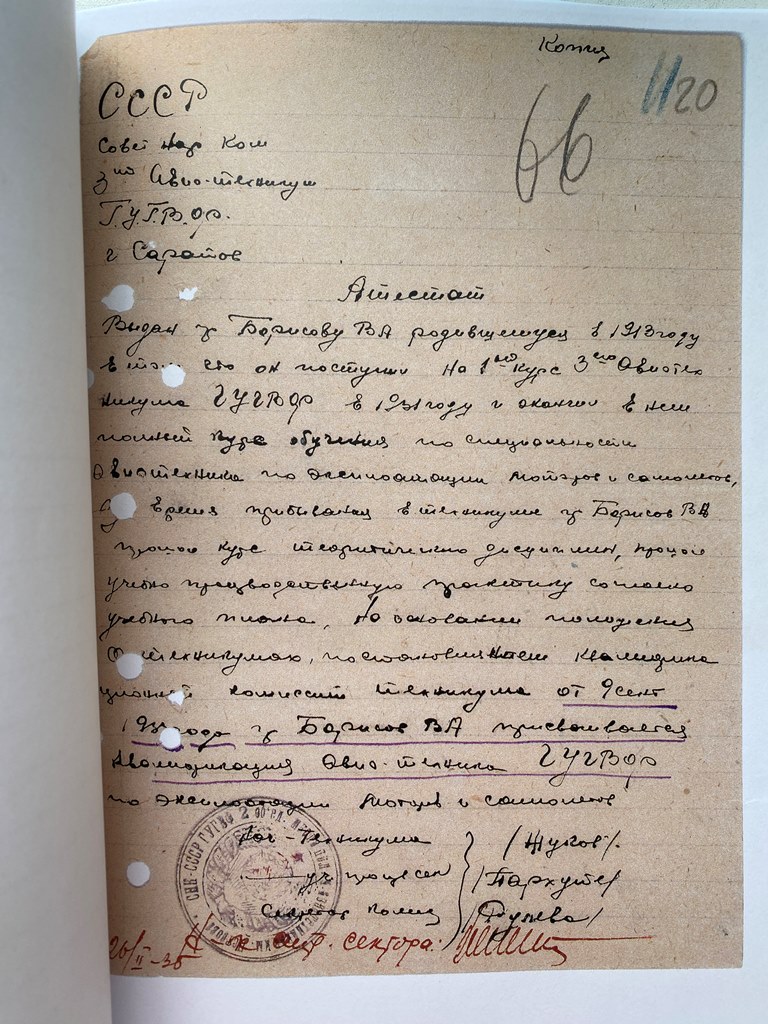 Копия
1120
66
СССР
Совет Нар Ком
3ий Авио-техникум
Г.У.Г.В.Ф.
г Саратов
Аттестат
Выдан гр Борисову ВА родившемуся в 1913 году
в том что он поступил на 1вый курс 3его Авиотех
никума ГУГВФ в 1931 году и окончил в нем
полный курс обучения по специальности
Авиотехника по эксплоатации моторов и самолетов,
время пребывания в техникуме гр Борисов ВА
прошел курс теоритических дисциплин, прошел
учебно производственную практику согласно
учебного плана, На основании положения
О техникумах, постановлением Квалифика
ционной комиссии техникума от 9 сент
года гр Борисов ВА присваивается
Квалификация Авио-техника ГУГВФ
по эксплоатации моторов и самолетов
Нач-Техникума /Жуков/.
уч процессом /Пархути/
Секретар комис /Рулева/
Н-к стр. сектора.
20/II-35